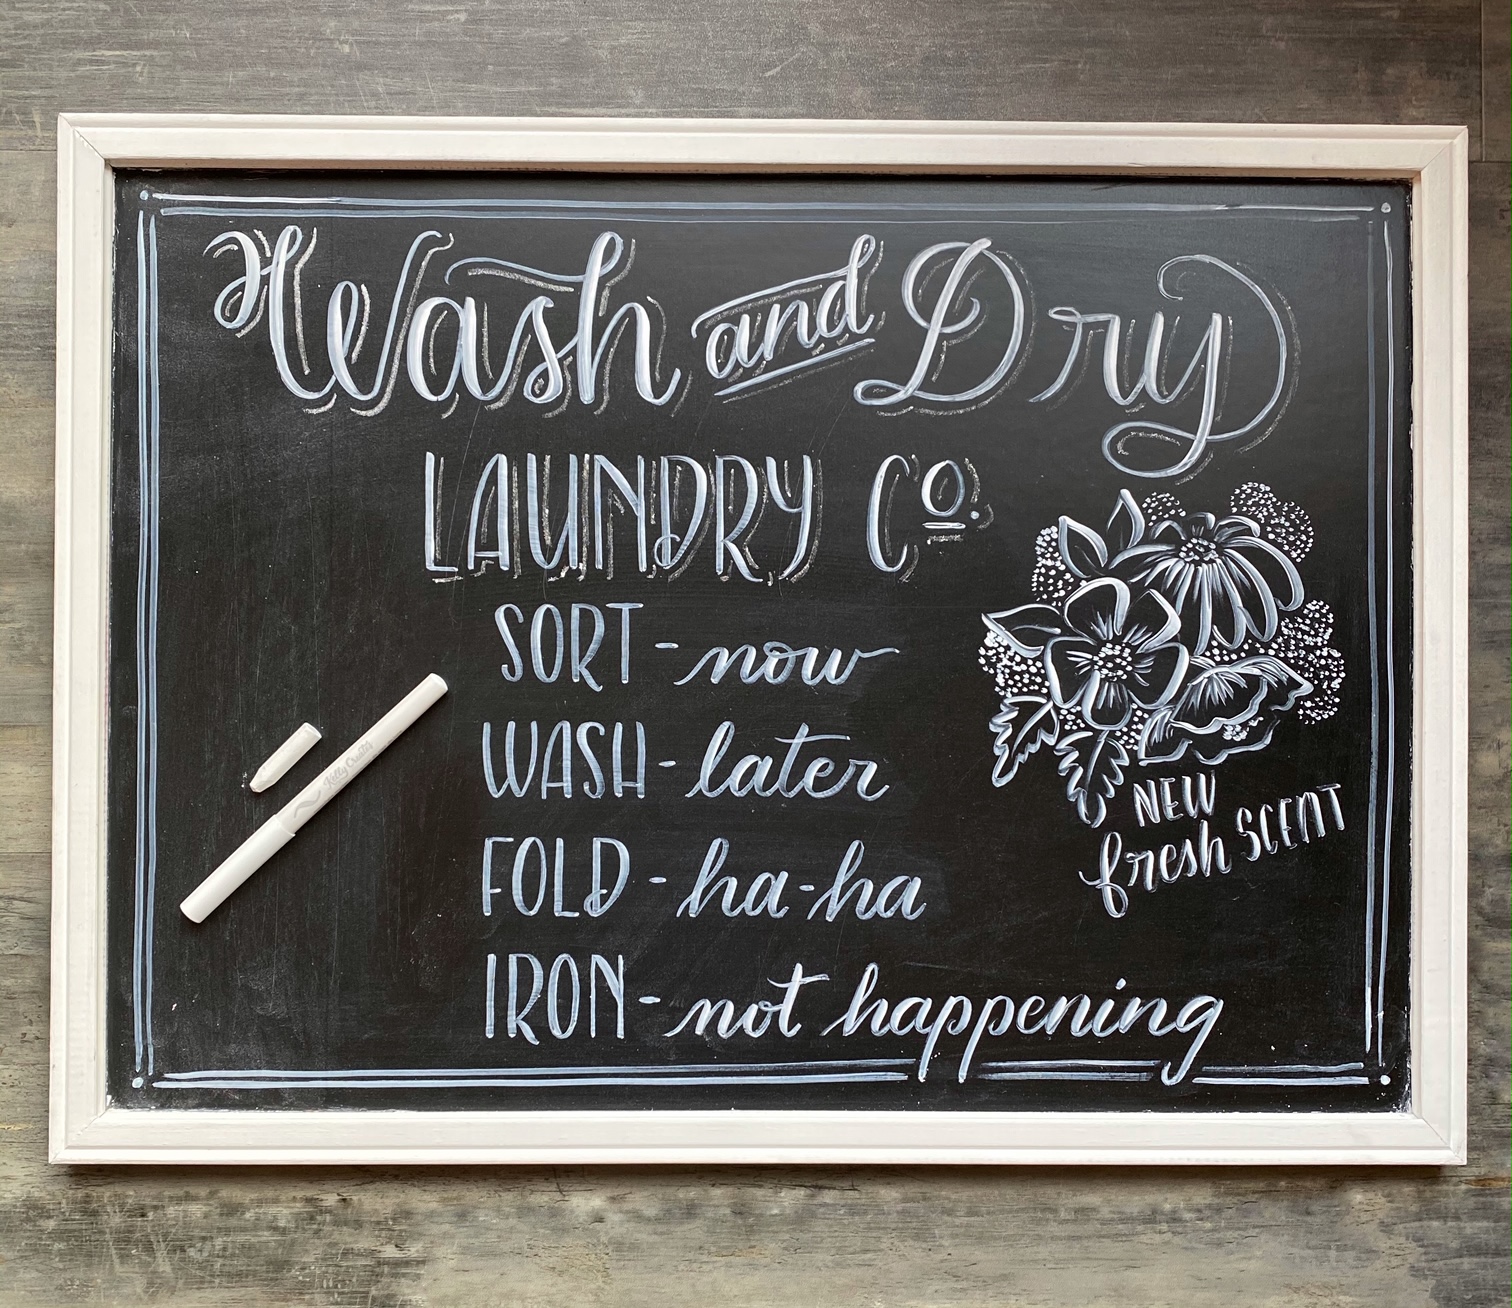 Wash and Dry
LAUNDRY Co.
SORT - now
WASH - later
FOLD - ha-ha
IRON - not happening
NEW
fresh SCENT
Kelly Creates